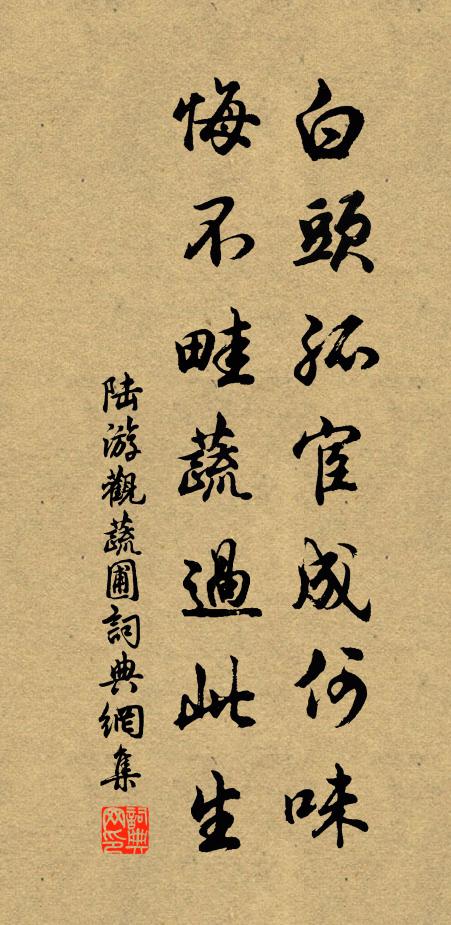 白頭孤宦成何味
悔不畦蔬過此生
陸游觀蔬圃詞典網集
詞典網印